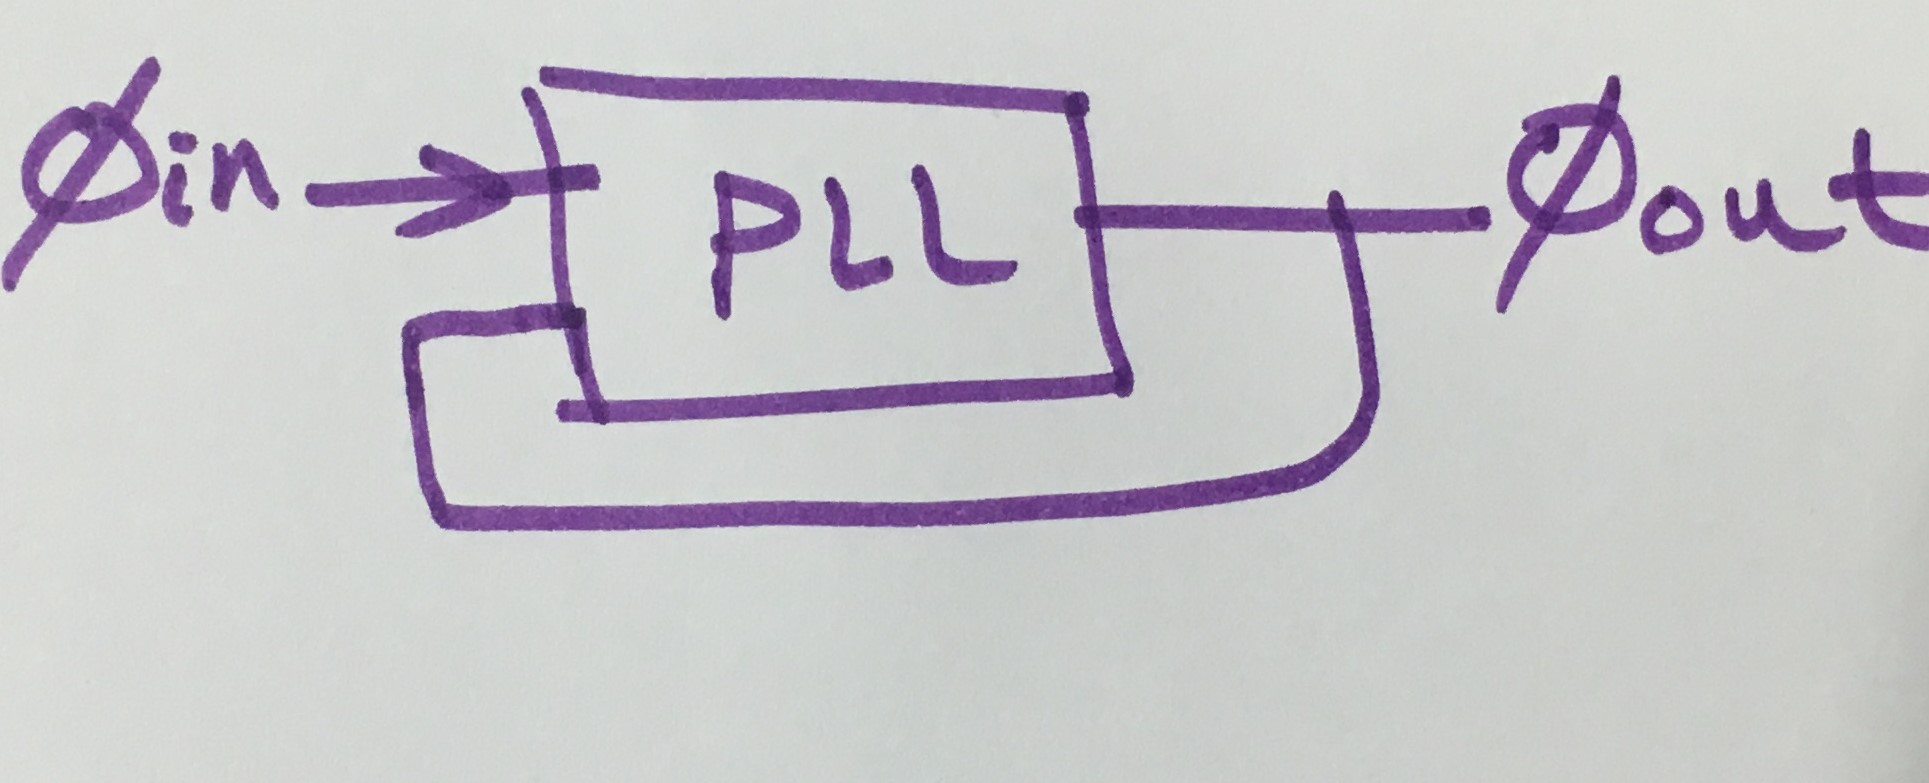 φin PLL φout